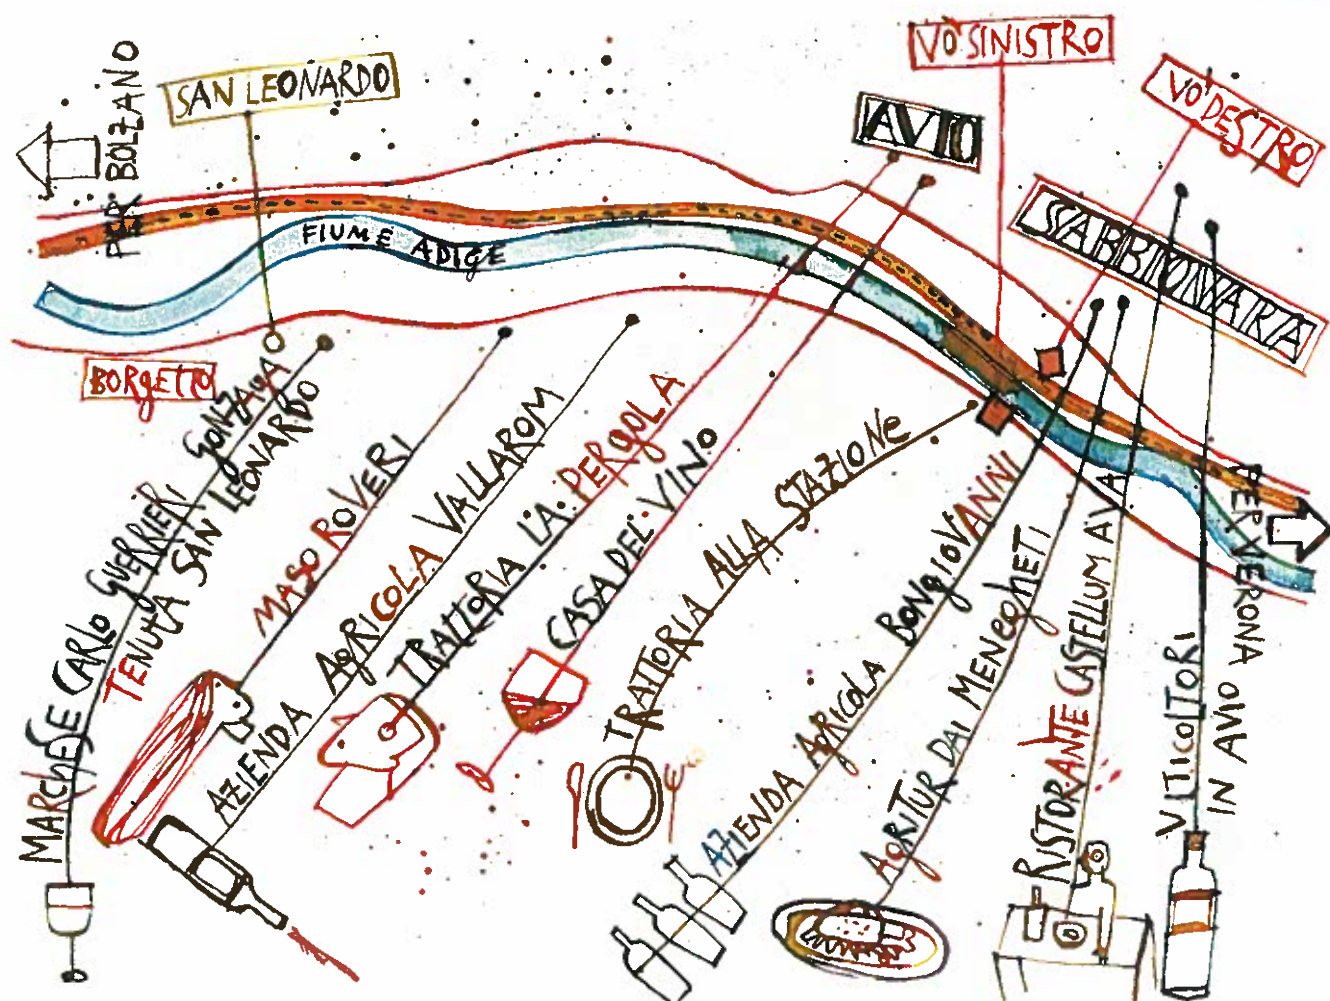 PER BOLZANO
SAN LEONARDO
AVIO
VO' SINISTRO
VO' DESTRO
SABBIONARA
FIUME ADIGE
BORGETTO
MARCHESE CARLO GUERRIERI GONZAGA
TENUTA SAN LEONARDO
MASO ROVERI
AZIENDA AGRICOLA VALLAROM
TRATTORIA LA PERGOLA
CASA DEL VINO
TRATTORIA ALLA STAZIONE
AZIENDA AGRICOLA BONGIOVANNI
AGRITUR DAI MENEGHETI
RISTORANTE CASTELLUM AVA
VITICOLTORI
IN AVIO
PER VERONA